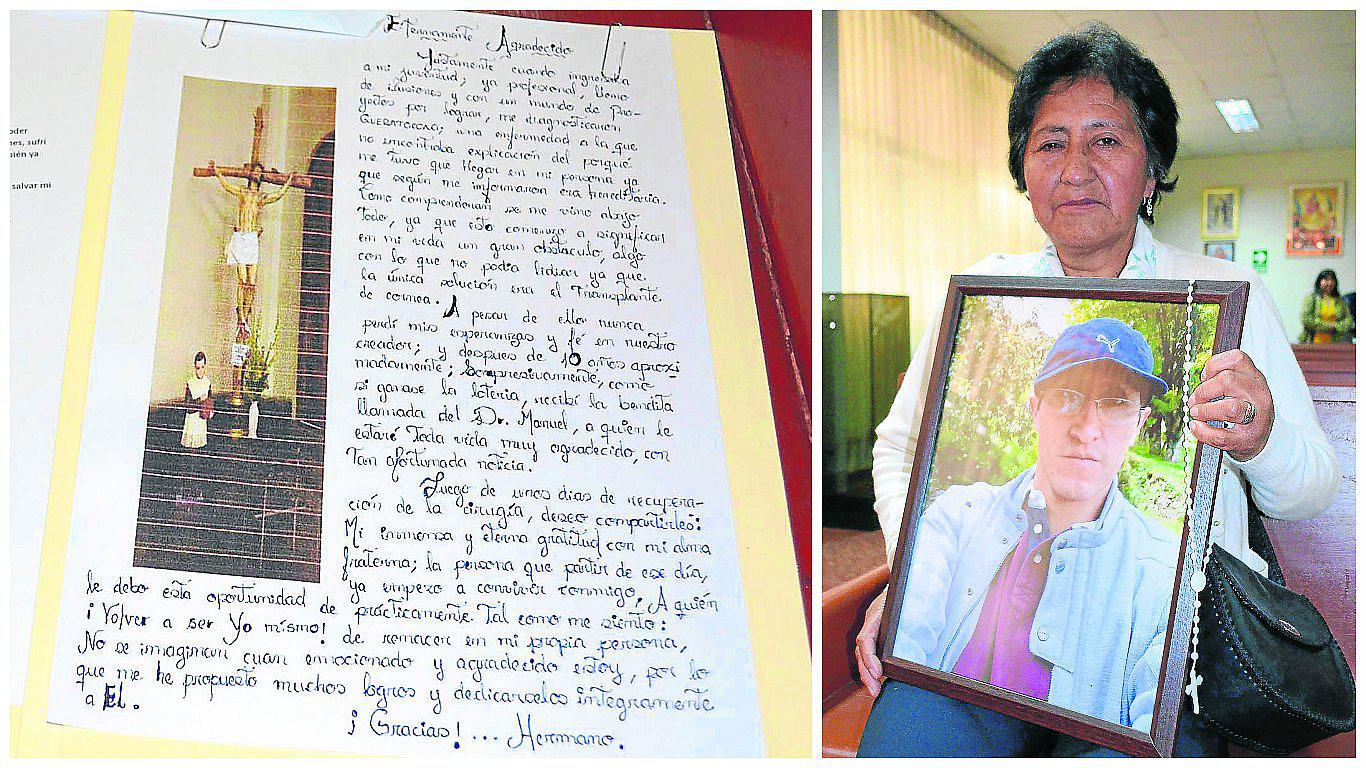 oder
nes, sufrí
bién ya
salvar mi
Eternamente Agradecido
Justamente cuando ingresaba
a mi juventud, ya profesional, lleno
de ilusiones y con un mundo de pro-
yectos por lograr, me diagnosticaron
QUERATOCONO; una enfermedad a la que
no encontraba explicación del porqué
me tuvo que llegar en mi persona ya
que según me informaron era hereditaria.
Como comprenderan se me vino abajo
Todo, ya que esto comenzo a significar
en mi vida un gran obstaculo, algo
con lo que no podia lidiar ya que
la única solución era el Transplante
de cornea. A pesar de ello nunca
perdí mis esperanzas y fé en nuestro
creador; y despues de 10 años aproxi-
madamente; Sorpresivamente, como
si ganase la loteria, recibí la bendita
llamada del Dr. Manuel, a quien le
estaré Toda vida muy agradecido, con
Tan afortunada noticia.
Luego de unos dias de recupera-
ción de la cirugía, deseo compartirles:
Mi inmensa y eterna gratitud con mi alma
fraterna; la persona que partir de ese día,
ya empezo a convivir conmigo, A quién
le debo esta oportunidad de prácticamente. Tal como me siento:
¡Volver a ser Yo mismo! de renacer en mi propia persona,
No se imaginan cuan emocionado y agradecido estoy, por lo
que me he propuesto muchos logros y dedicarcelos integramente
a EL.
¡Gracias! ... Hermano.